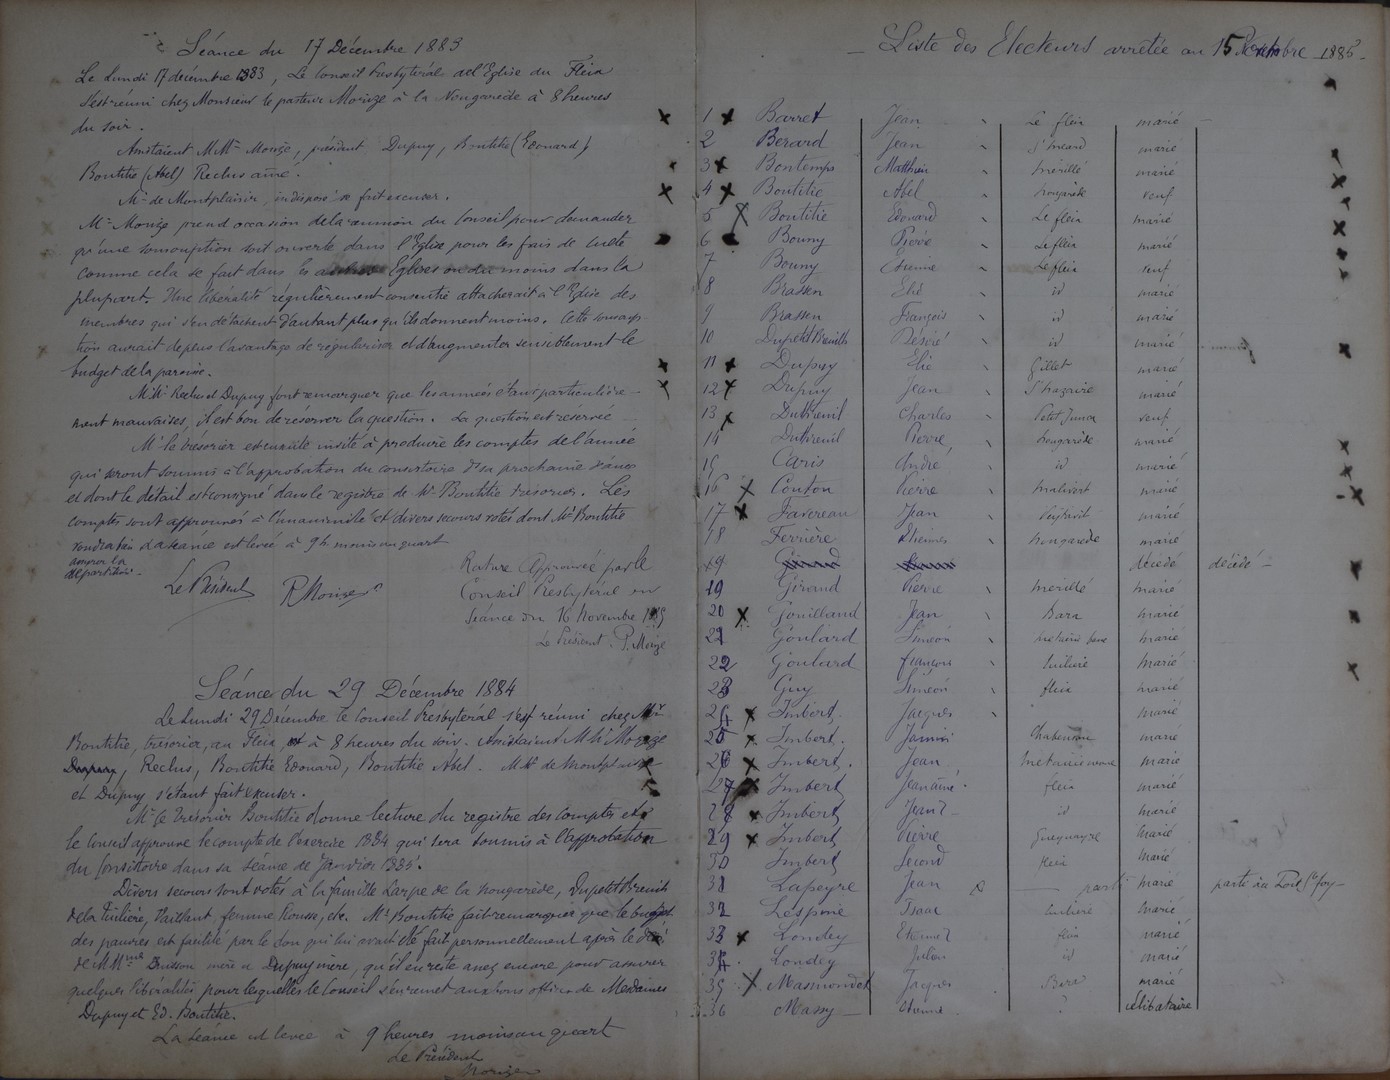 Séance du 17 Décembre 1883
Le Lundi 17 décembre 1883, Le Conseil Presbytéral de l'Eglise du Fleix
s'est réuni chez Monsieur le pasteur Morize à la Nougarède à 8 heures
du soir.
Assistaient M.Mrs Morize, président, Dupuy, Bontitie (Edouard)
Bontitie (Abel) Reclus ainé.
Mr de Montplaisir, indisposé se fait excuser.
Mr Morize prend occasion de la réunion du Conseil pour demander
qu'une souscription soit ouverte dans l'Eglise pour les frais de culte
comme cela se fait dans les Eglises ou du moins dans la
plupart. Une libéralité régulièrement consentie attacherait à l'Eglise des
membres qui s'en détachent d'autant plus qu'ils donnent moins. Cette souscrip-
tion aurait de plus l'avantage de régulariser et d'augmenter sensiblement le
budget de la paroisse.
M.Mrs Reclus et Dupuy font remarquer que les années étant particulière-
ment mauvaises, il est bon de réserver la question. La question est réservée
Mr le Trésorier est ensuite invité à produire les comptes de l'année
qui seront soumis à l'approbation du consistoire dans sa prochaine séance
et dont le détail est consigné dans le registre de Mr Bontitie trésorier. Les
comptes sont approuvés à l'unanimité et divers secours votés dont Mr Bontitie
voudra bien La séance est levée à 9h moins un quart
assurer la
répartition.
Le Président P. Morize
Rature Approuvée par le
Conseil Presbytéral en
Séance du 16 Novembre 1885
Le Président P. Morize
Séance du 29 Décembre 1884
Le Lundi 29 Décembre le Conseil Presbytéral s'est réuni chez Mr
Bontitie, trésorier, au Fleix, à 8 heures du soir. Assistaient M.Mrs Morize
Reclus, Bontitie Edouard, Bontitie Abel. M.Mrs de Montplaisir
et Dupuy s'étant fait excuser.
Mr le Trésorier Bontitie donne lecture du registre des comptes et
le Conseil approuve le compte de l'exercice 1884 qui sera soumis à l'approbation
du Consistoire dans sa séance de Janvier 1885.
Divers secours sont votés à la famille Larpe de la Nougarède, Dupetit Breuilh
de la Tuilière, Vaillant, femme Rousse, etc. Mr Bontitie fait remarquer que le budget
des pauvres est facilité par le don qui lui avait été fait personnellement après le
de M.Mme Brusson mère et Dupuy mère, qu'il en reste assez encore pour assurer
quelques libéralités pour lesquelles le Conseil s'en remet aux bons offices de Mesdames
Dupuy et Ed. Bontitie.
La séance est levée à 9 heures moins un quart
Le Président
Morize
Liste des Electeurs arrêtée au 15 1885
1 Barret Jean Le fleix marié
2 Berard Jean St Méard marié
3 Bontemps Matthieu marié
4 Bontitie Abel nougarède veuf
5 Bontitie Edouard Le fleix marié
6 Bouny Pierre Le fleix marié
7 Bouny Etienne Le fleix veuf
8 Brassen Elie id marié
9 Brassen François id marié
10 Dupetit Breuilh Désiré id marié
11 Dupuy Elie Gillet marié
12 Dupuy Jean St Nazaire marié
13 Dutheuil Charles veuf
14 Dutheuil Pierre nougarède marié
15 Caris André id marié
16 Couton Pierre malivert marié
17 Favereau Jean marié
18 Ferrière Etienne nougarède marié
19 décédé décédé
19 Giraud Pierre marié
20 Gouilland Jean Bara marié
21 Goulard Siméon marié
22 Goulard François tuiliere marié
23 Guy Siméon fleix marié
24 Imbert Jacques marié
25 Imbert marié
26 Imbert Jean marié
27 Imbert Jean ainé fleix marié
28 Imbert Jean 2 id marié
29 Imbert Pierre marié
30 Imbert Second fleix marié
31 Lapeyre Jean parti marié parti au Port Ste foy
32 Lespine Isaac tuiliere marié
33 Londey fleix marié
34 Londey Julien id marié
35 Masmondet Jacques Bara marié
36 Massy Etienne " célibataire